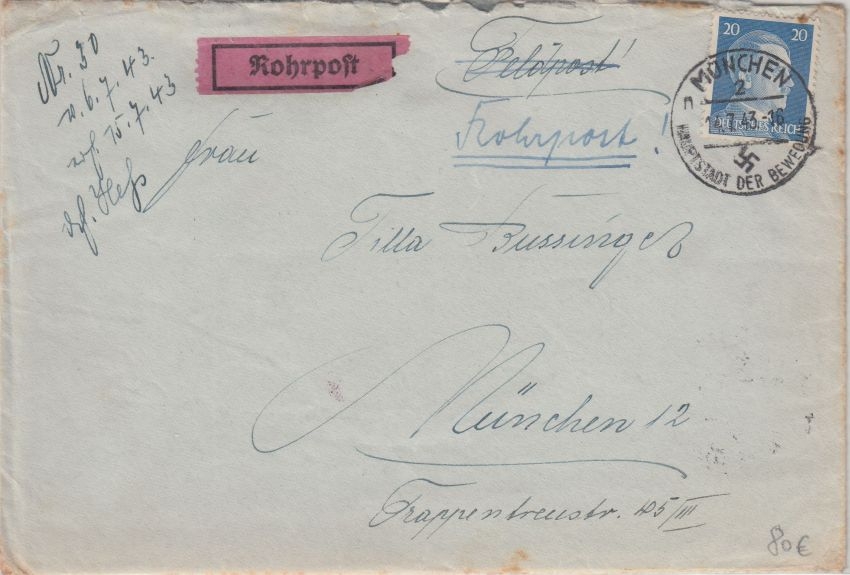 Nr. 30
v. 6.7.43.
erh. 15.7.43
Rohrpost
Feldpost!
Rohrpost!
20 20
DEUTSCHES REICH
MÜNCHEN
2
.7.43.-16
HAUPTSTADT DER BEWEGUNG
Frau
Tilla Bussinger
München 12
Trappentreustr. 45/III
80€